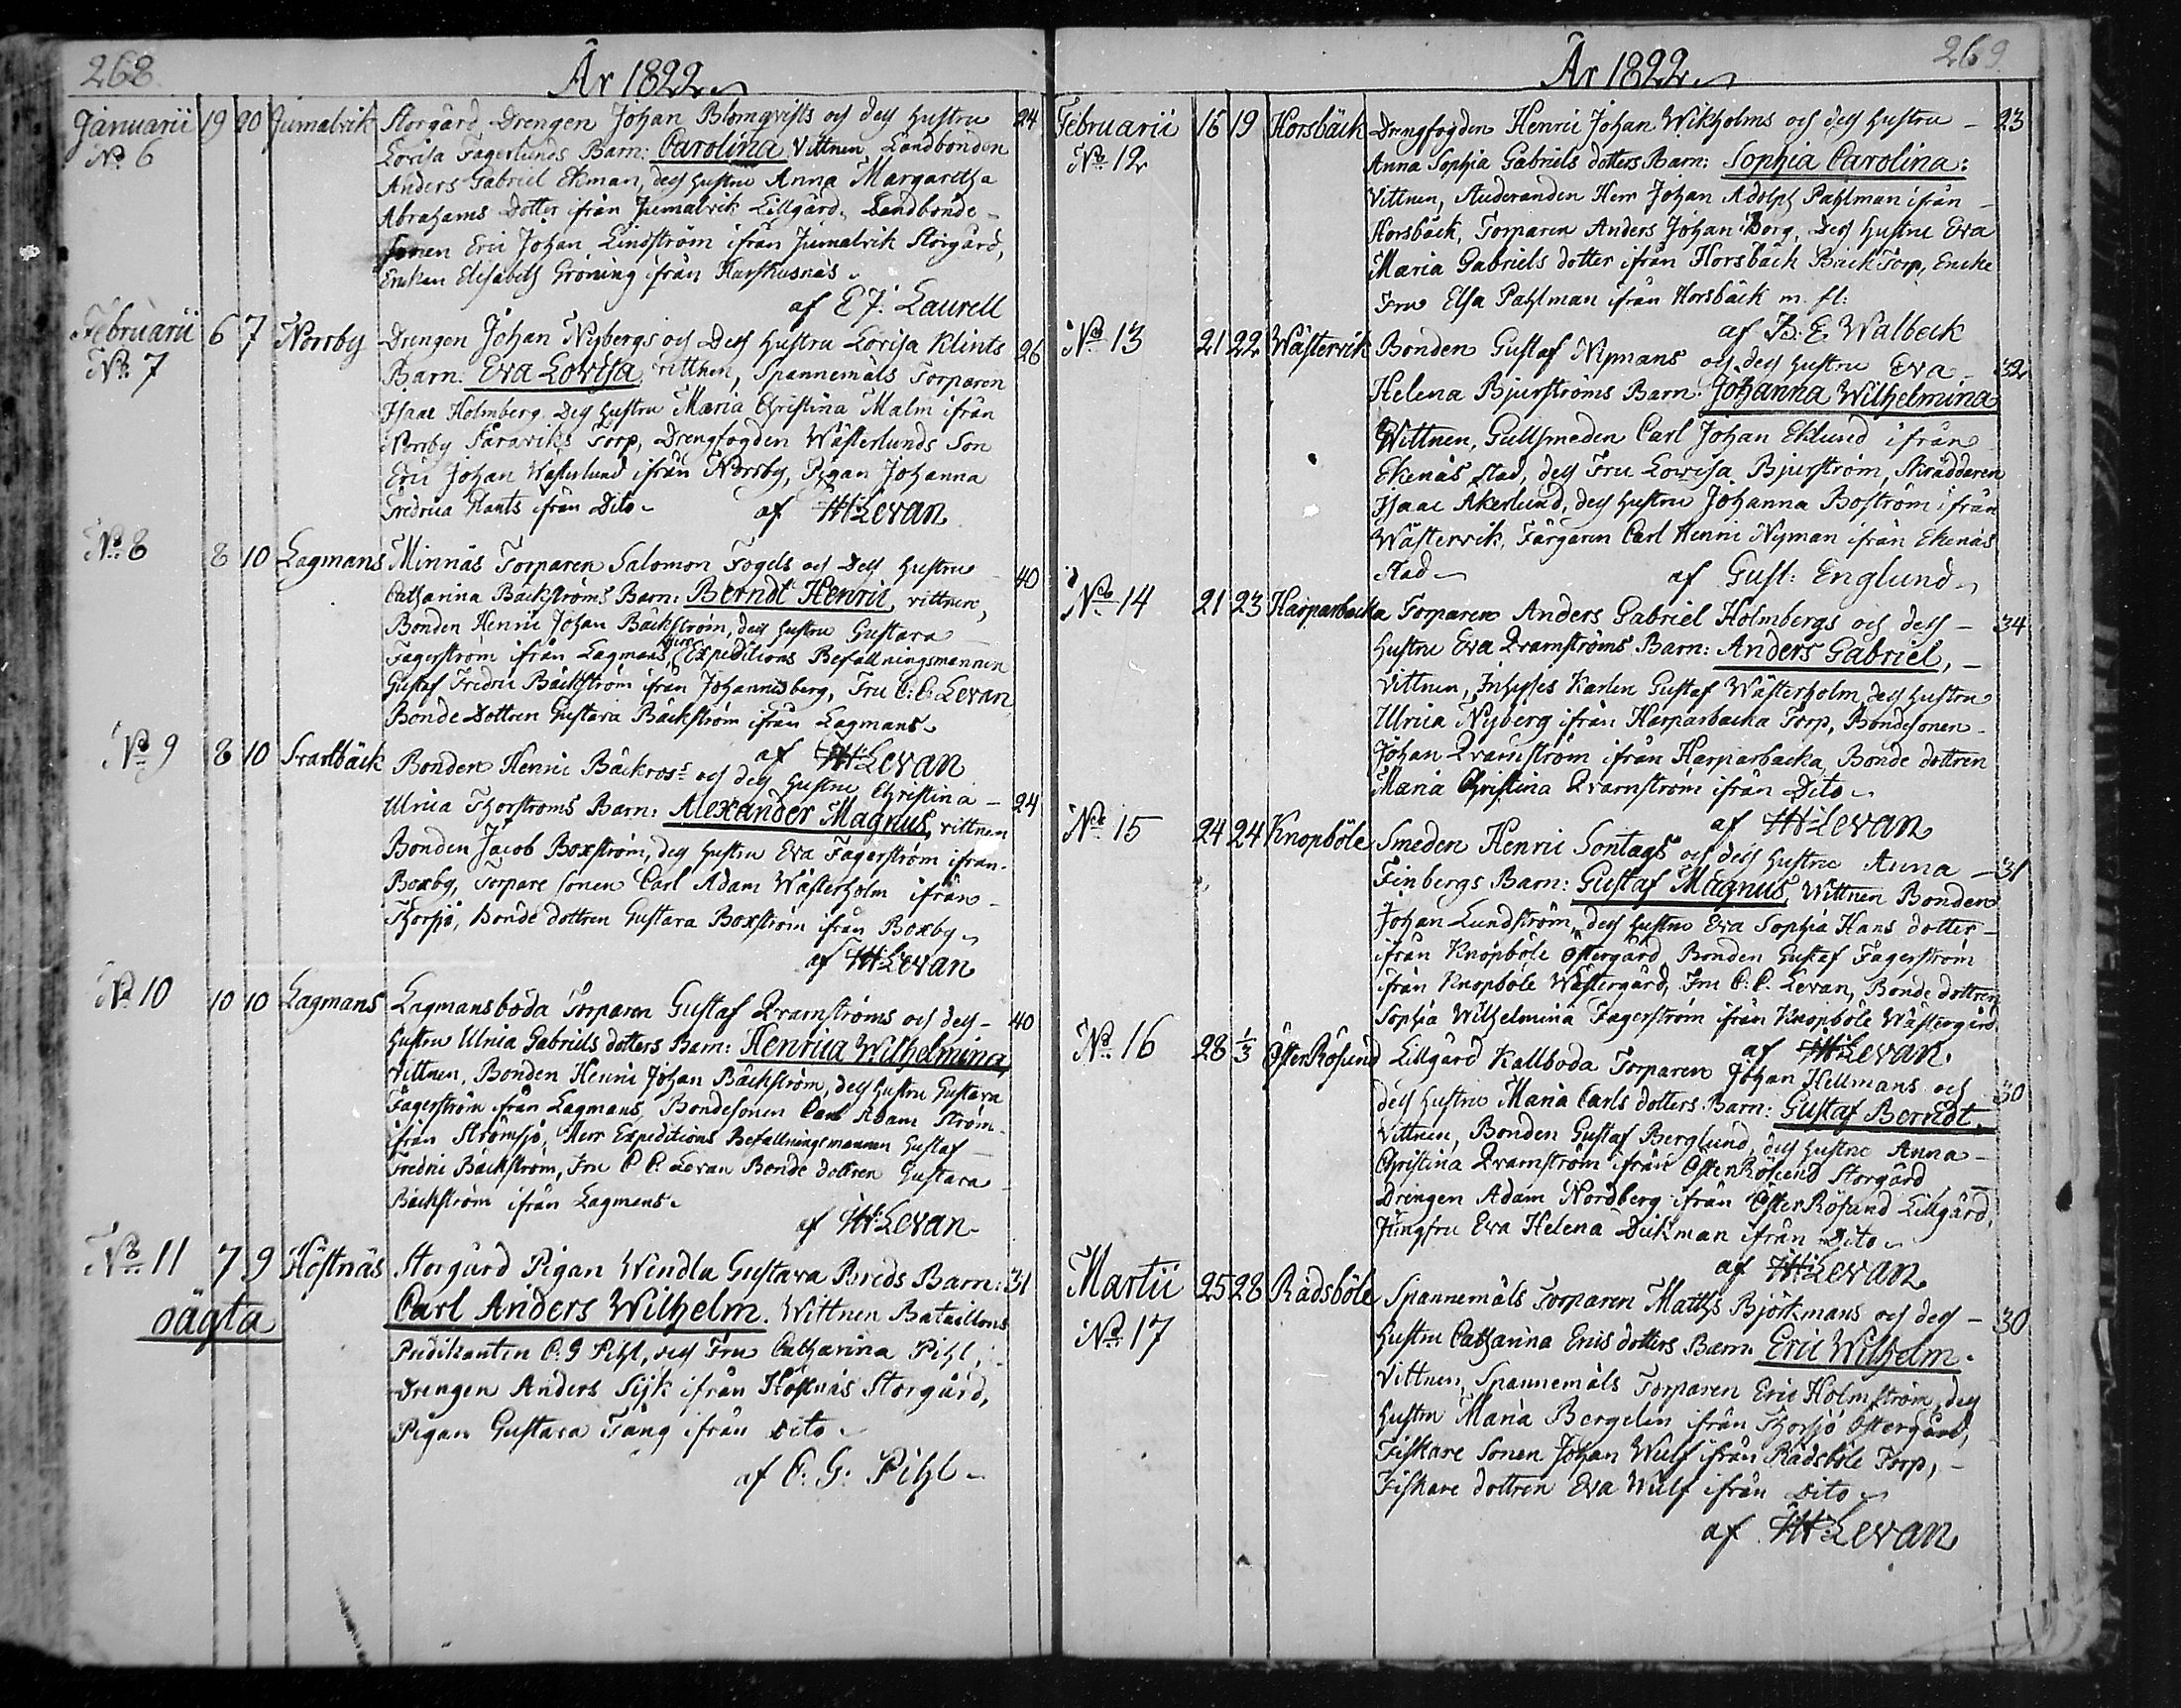 268
År 1822
Januarii 19 20 Jumalvik Storgård Drengen Johan Blomqvists och dess hustru 24
No 6 Lovisa Fagerlunds Barn: Carolina Vittnen Landbonden
Anders Gabriel Ekman, dess hustru Anna Margaretha
Abrahams Dotter ifrån Jumalvik Lillgård, Landbonde-
sonen Eric Johan Lindström ifrån Jumalvik Storgård,
Enkan Elisabeth Gröning ifrån
af E J: Laurell
Februarii 6 7 Norrby Drengen Johan Nybergs och Dess hustru Lovisa Klints 26
No 7 Barn: Eva Lovisa, vittnen, Spannemåls Torparen
Isaac Holmberg Dess hustru Maria Christina Malm ifrån
Norrby Torp, Drengfogden Wästerlunds Son
Eric Johan Wästerlund ifrån Norrby, Pigan Johanna
Fredrica ifrån Dito
af Levan
No 8 8 10 Lagmans Minnäs Torparen Salomon Fogels och Dess hustru 40
Catharina Bäckströms Barn: Berndt Henric, vittnen,
Bonden Henric Johan Bäckström, dess hustru Gustava
Fagerström ifrån Lagmans, Herr Expeditions Befallningsmannen
Gustaf Fredric Bäckström ifrån Johannisberg, Fru C: C: Levan
Bonde Dottren Gustava Bäckström ifrån Lagmans
af Levan
No 9 8 10 Svartbäck Bonden Henric Bäckros's och dess hustru Christina - 24
Ulrica Thorströms Barn: Alexander Magnus, vittnen
Bonden Jacob Boxström, dess hustru Eva Fagerström ifrån
Boxby, Torpare sonen Carl Adam Wästerholm ifrån
Thorsjö, Bonde dottren Gustava Boxström ifrån Boxby
af Levan
No 10 10 10 Lagmans Lagmansböda Torparen Gustaf Qvarnströms och dess - 40
hustru Ulrica Gabriels dotters Barn: Henrica Wilhelmina,
vittnen, Bonden Henric Johan Bäckström, dess hustru Gustava
Fagerström ifrån Lagmans, Bondesonen Carl Adam Ström
ifrån Strömsjö, Herr Expeditions Befallningsmannen Gustaf
Fredric Bäckström, Fru C C. Levan Bonde dottren Gustava
Bäckström ifrån Lagmans
af Levan
No 11 7 9 Höstnäs Storgård Pigan Wendla Gustava Breds Barn: 31
oägta Carl Anders Wilhelm. Wittnen Bataillons
Predikanten C. G Pihl, dess Fru Catharina Pihl,
Drengen Anders Sijk ifrån Höstnäs Storgård,
Pigan Gustava Tång ifrån Dito
af C. G: Pihl
269
År 1822
Februarii 16 19 Horsbäck Drengfogden Henric Johan Wikholms och dess hustru - 23
No 12 Anna Sophia Gabriels dotters Barn: Sophia Carolina:
Vittnen, Studeranden Herr Johan Adolph Pahlman ifrån
Horsbäck, Torparen Anders Johan Borg, Dess hustru Eva
Maria Gabriels dotter ifrån Horsbäck Back Torp, Encke
Fru Elsa Pahlman ifrån Horsbäck m. fl:
af B: E Walbeck
No 13 21 22 Wästervik Bonden Gustaf Nymans och dess hustru Eva - 32
Helena Bjurströms Barn: Johanna Wilhelmina
Wittnen, Gullsmeden Carl Johan Eklund ifrån
Ekenäs stad, dess Fru Lovisa Bjurström, Skräddaren
Isaac Åkerlund, dess hustru Johanna Boström ifrån
Wästervik, Färgaren Carl Henric Nyman ifrån Ekenäs
stad
af Gust: Englund
No 14 21 23 Harparbacka Torparen Anders Gabriel Holmbergs och dess - 34
hustru Eva Qvarnströms Barn: Anders Gabriel, -
Vittnen, Inhyses Karlen Gustaf Wästerholm, dess hustru
Ulrica Nyberg ifrån Harparbacka Torp, Bondesonen
Johan Qvarnström ifrån Harparbacka, Bonde dottren
Maria Christina Qvarnström ifrån Dito
af Levan
No 15 24 24 Knopböle Smeden Henric Sontags och dess hustru Anna - 31
Finbergs Barn: Gustaf Magnus, Wittnen Bonden
Johan Lundström, dess hustru Eva Sophia Hans dotter
ifrån Knopböle Östergård, Bonden Gustaf Fagerström
ifrån Knopböle Wästergård, Fru C. C. Levan, Bonde dottren
Sophia Wilhelmina Fagerström ifrån Knopböle Wästergård
af Levan.
No 16 28 1/3 ÖsterRösund Lillgård Kallboda Torparen Johan Hellmans och
dess hustru Maria Carls dotters Barn: Gustaf Berndt. 30
Vittnen, Bonden Gustaf Berglund, dess hustru Anna -
Christina Qvarnström ifrån ÖsterRösund Storgård
Drengen Adam Nordberg ifrån ÖsterRösund Lillgård,
Jungfru Eva Helena Dickman ifrån Dito
af Levan
Martii 25 28 Rådsböle Spannemåls Torparen Matths Björkmans och dess - 30
No 17 hustru Catharina Erics dotters Barn: Eric Wilhelm.
Vittnen, Spannemåls Torparen Eric Holmström, dess
hustru Maria Bergelin ifrån Thorsjö Östergård,
Fiskare Sonen Johan Wulf ifrån Rådsböle Torp, -
Fiskare dottren Eva Wulf ifrån Dito
af Levan